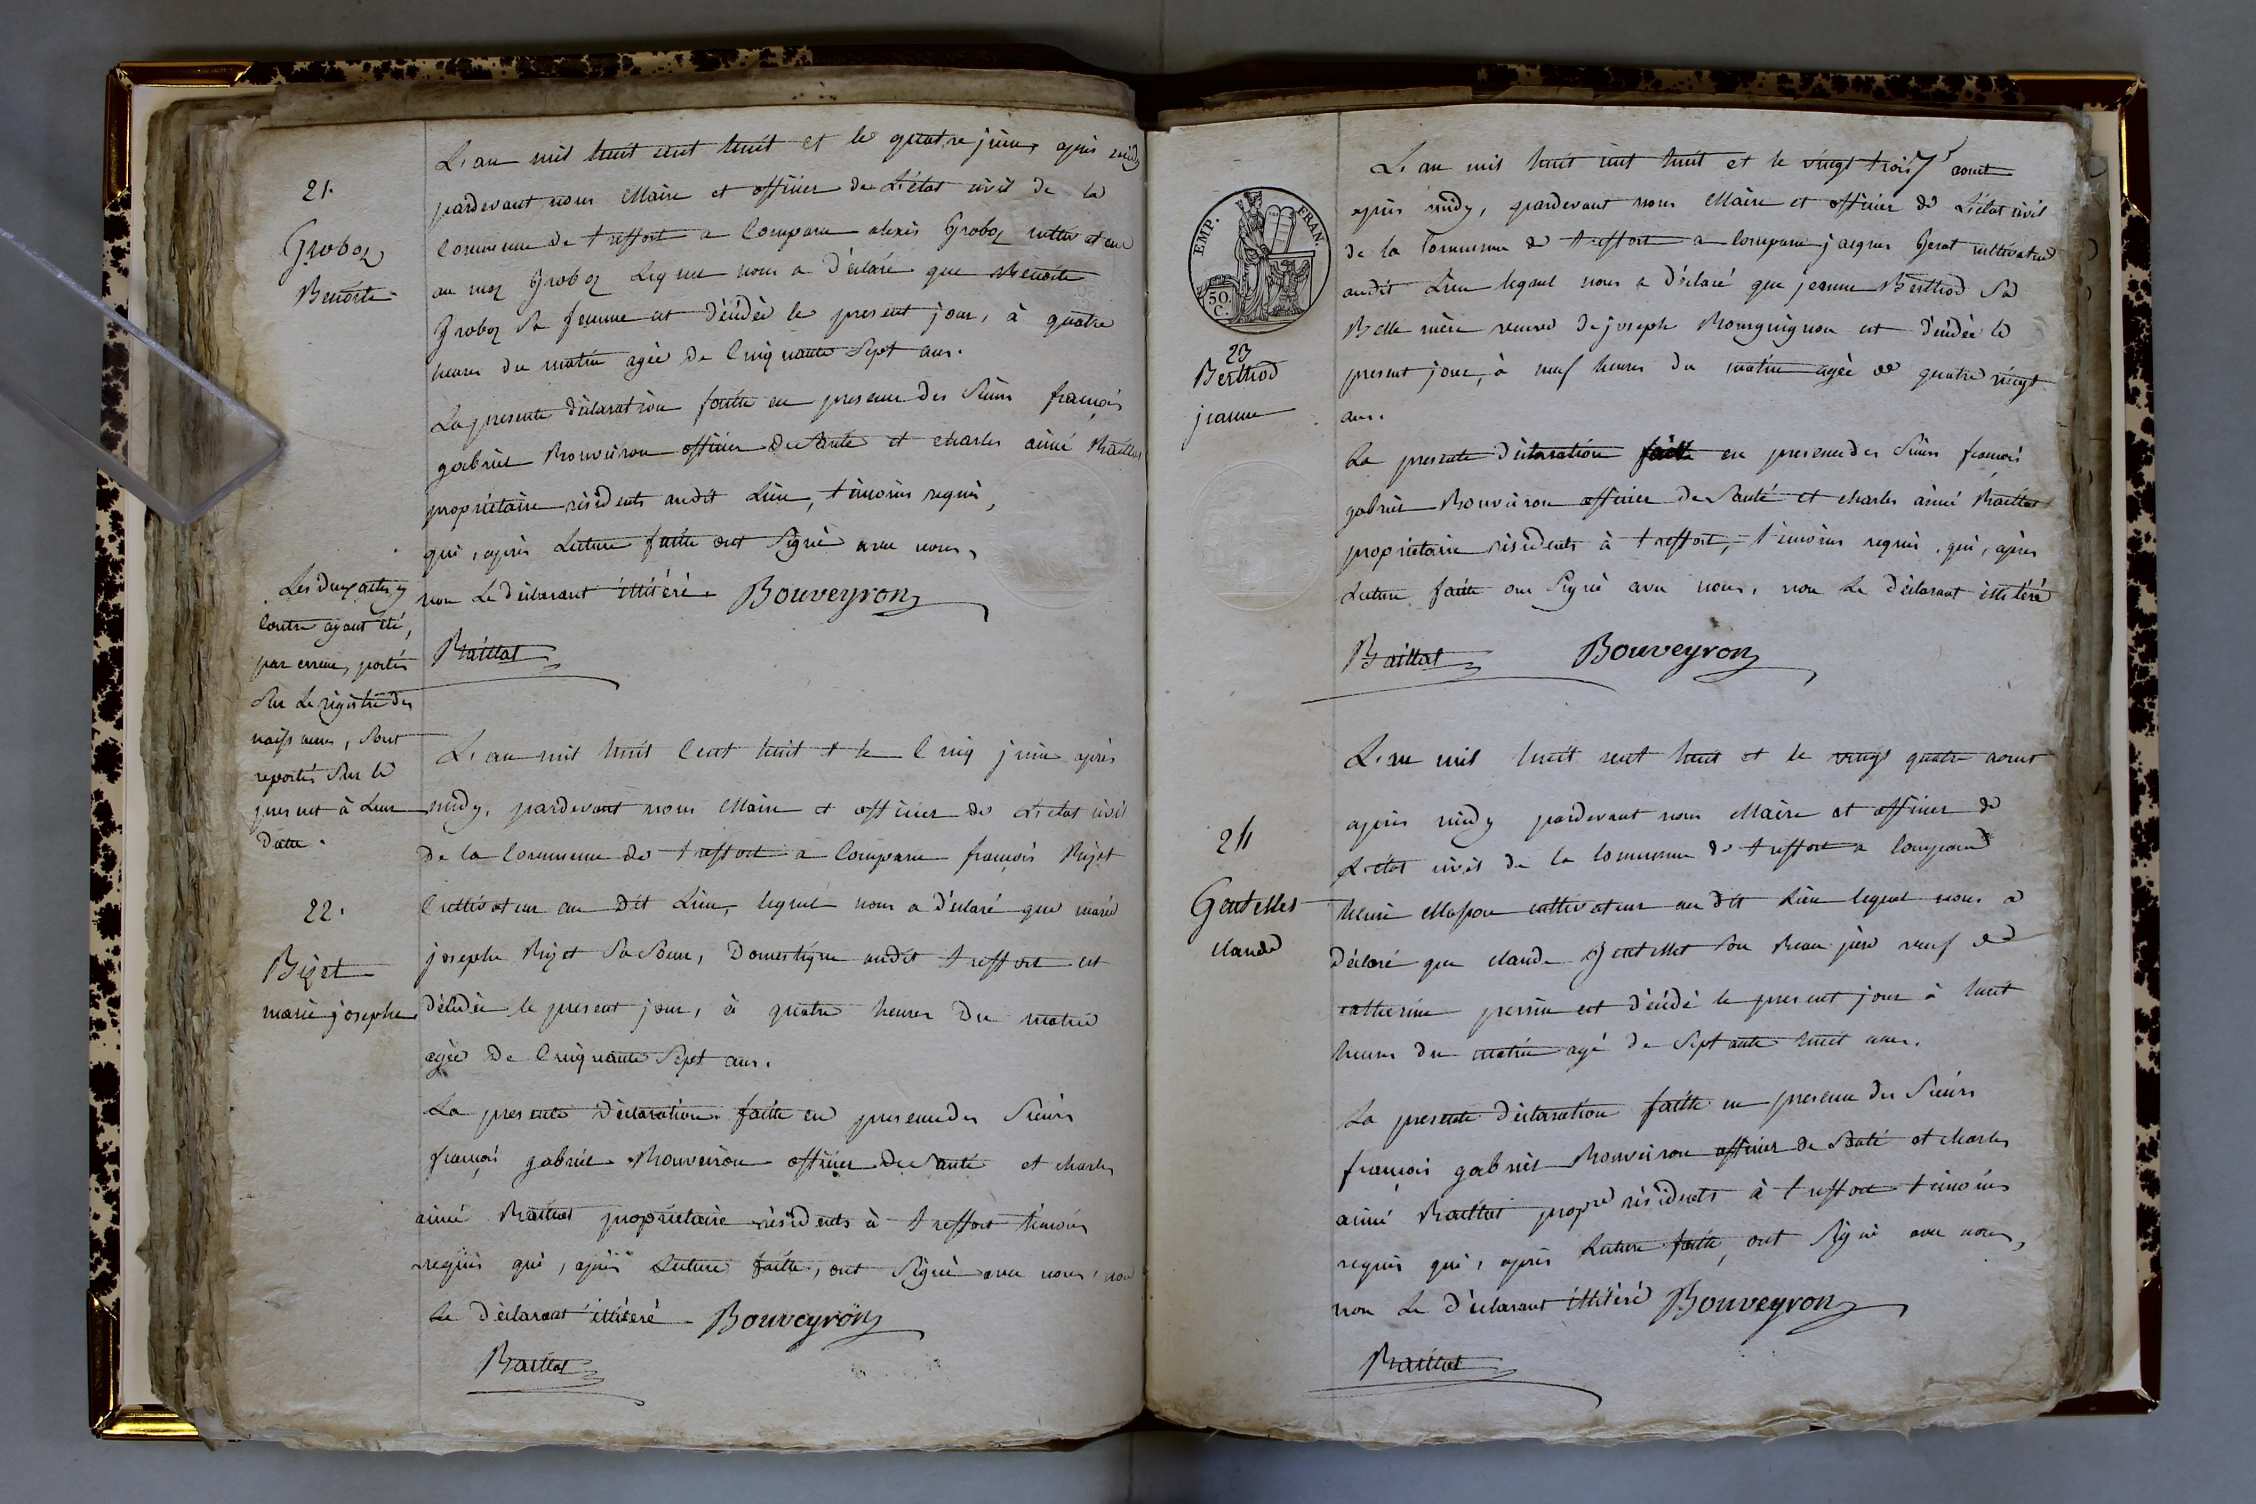 21.
Groboz
Benoite
L'an mil huit cent huit et le quatre juin, après midy
pardevant nous Maire et officier de L'état civil de la
Commune de treffort a Comparu alexis Groboz cultivateur
au mas Groboz Lequel nous a déclaré que Benoite
Groboz Sa femme est décédée le présent jour, à quatre
heures du matin agée de Cinquante Sept ans.
La présente déclaration faitte en présence des Sieurs françois
gabriel Bouveiron officier de Santé et charles aimé Baillat
propriétaire résidents audit Lieu, témoins requis,
qui, après Lecture faitte ont Signé avec nous,
non Le déclarant illitéré. Bouveyron
Baillat
Les deux actes cy
Contre ayant été,
par erreur, portés
Sur Le régistre des
naissances, Sont
reportés Sur le
present à Leur
date.
22.
Bijet
marie josephe
L'an mil huit Cent huit et le Cinq juin après
midy, pardevant nous Maire et officier de L'état civil
de la Commune de treffort a Comparu françois Bijet
Cultivateur au dit Lieu, lequel nous a déclaré que marie
josephe Bijet Sa Soeur, Domestique audit treffort est
décédée le present jour, à quatre heures du matin
agée de Cinquante Sept ans.
La présente déclaration faitte en présence des Sieurs
françois gabriel Bouveiron officier de Santé et charles
aimé Baillat propriétaire résidents à treffort témoins
requis qui, après Lecture faitte, ont Signé avec nous, non
Le déclarant illitéré. Bouveyron
Baillat
EMP. FRAN.
50.
C.
23
Berthod
jeanne
L'an mil huit cent huit et le vingt trois aout
après midy, pardevant nous Maire et officier de L'état civil
de la Commune de treffort a comparu jacques Gerat cultivateur
audit Lieu lequel nous a déclaré que jeanne Berthod Sa
Belle mère veuve de joseph Bourguignon est décédée le
present jour, à neuf heures du matin agée de quatre vingt
ans.
La presente déclaration faitte en présence des Sieurs françois
gabriel Bouveiron officier de Santé et charles aimé Baillat
propriétaire résidents à treffort, témoins requis, qui, après
Lecture faitte ont Signé avec nous, non Le déclarant illitéré
Baillat Bouveyron
24
Gentelles
claude
L'an mil huit cent huit et le vingt quatre aout
après midy pardevant nous Maire et officier de
L'état civil de la Commune de treffort a comparu
henri Masson cultivateur au dit Lieu lequel nous a
déclaré que claude Gentellet Son Beau père veuf de
catherine perrin est décédé le present jour à huit
heures du matin agé de Septante huit ans.
La présente déclaration faitte en présence des Sieurs
françois gabriel Bouveiron officier de Santé et charles
aimé Baillat propre résidents à treffort témoins
requis qui, après Lecture faitte, ont Signé avec nous,
non Le déclarant illitéré Bouveyron
Baillat